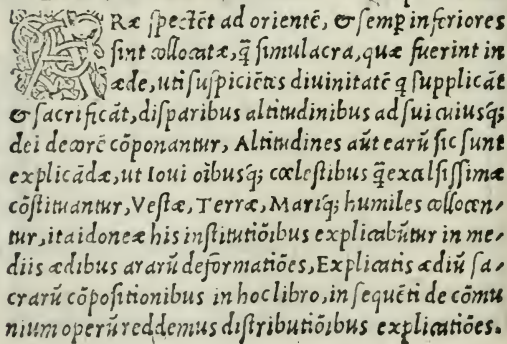 ARæ ſpectēt ad orientē, & ſemꝑ inferiores
ſint collocatæ, q̄̃ ſimulacra, quæ fuerint in
æde, uti ſuſpiciētes diuinitatē q ſupplicāt
& ſacrificāt, diſparibus altitudinibus ad ſui cuiuſq;
dei decorē cōponantur, Altitudines aūt earū ſic ſunt
explicādæ, ut Ioui oībuſq; cœleſtibus q̄̃ excelſiſſimæ
cōſtituantur, Veſtæ, Terræ, Mariq; humiles collocen⸗
tur, ita idoneæ his inſtitutiōibus explicabūtur in me⸗
diis ædibus ararū deformatiōes, Explicatis ædiū ſa⸗
crarū cōpoſitionibus in hoc libro, in ſequēti de cōmu
nium operū reddemus diſtributiōibus explicatiōes.